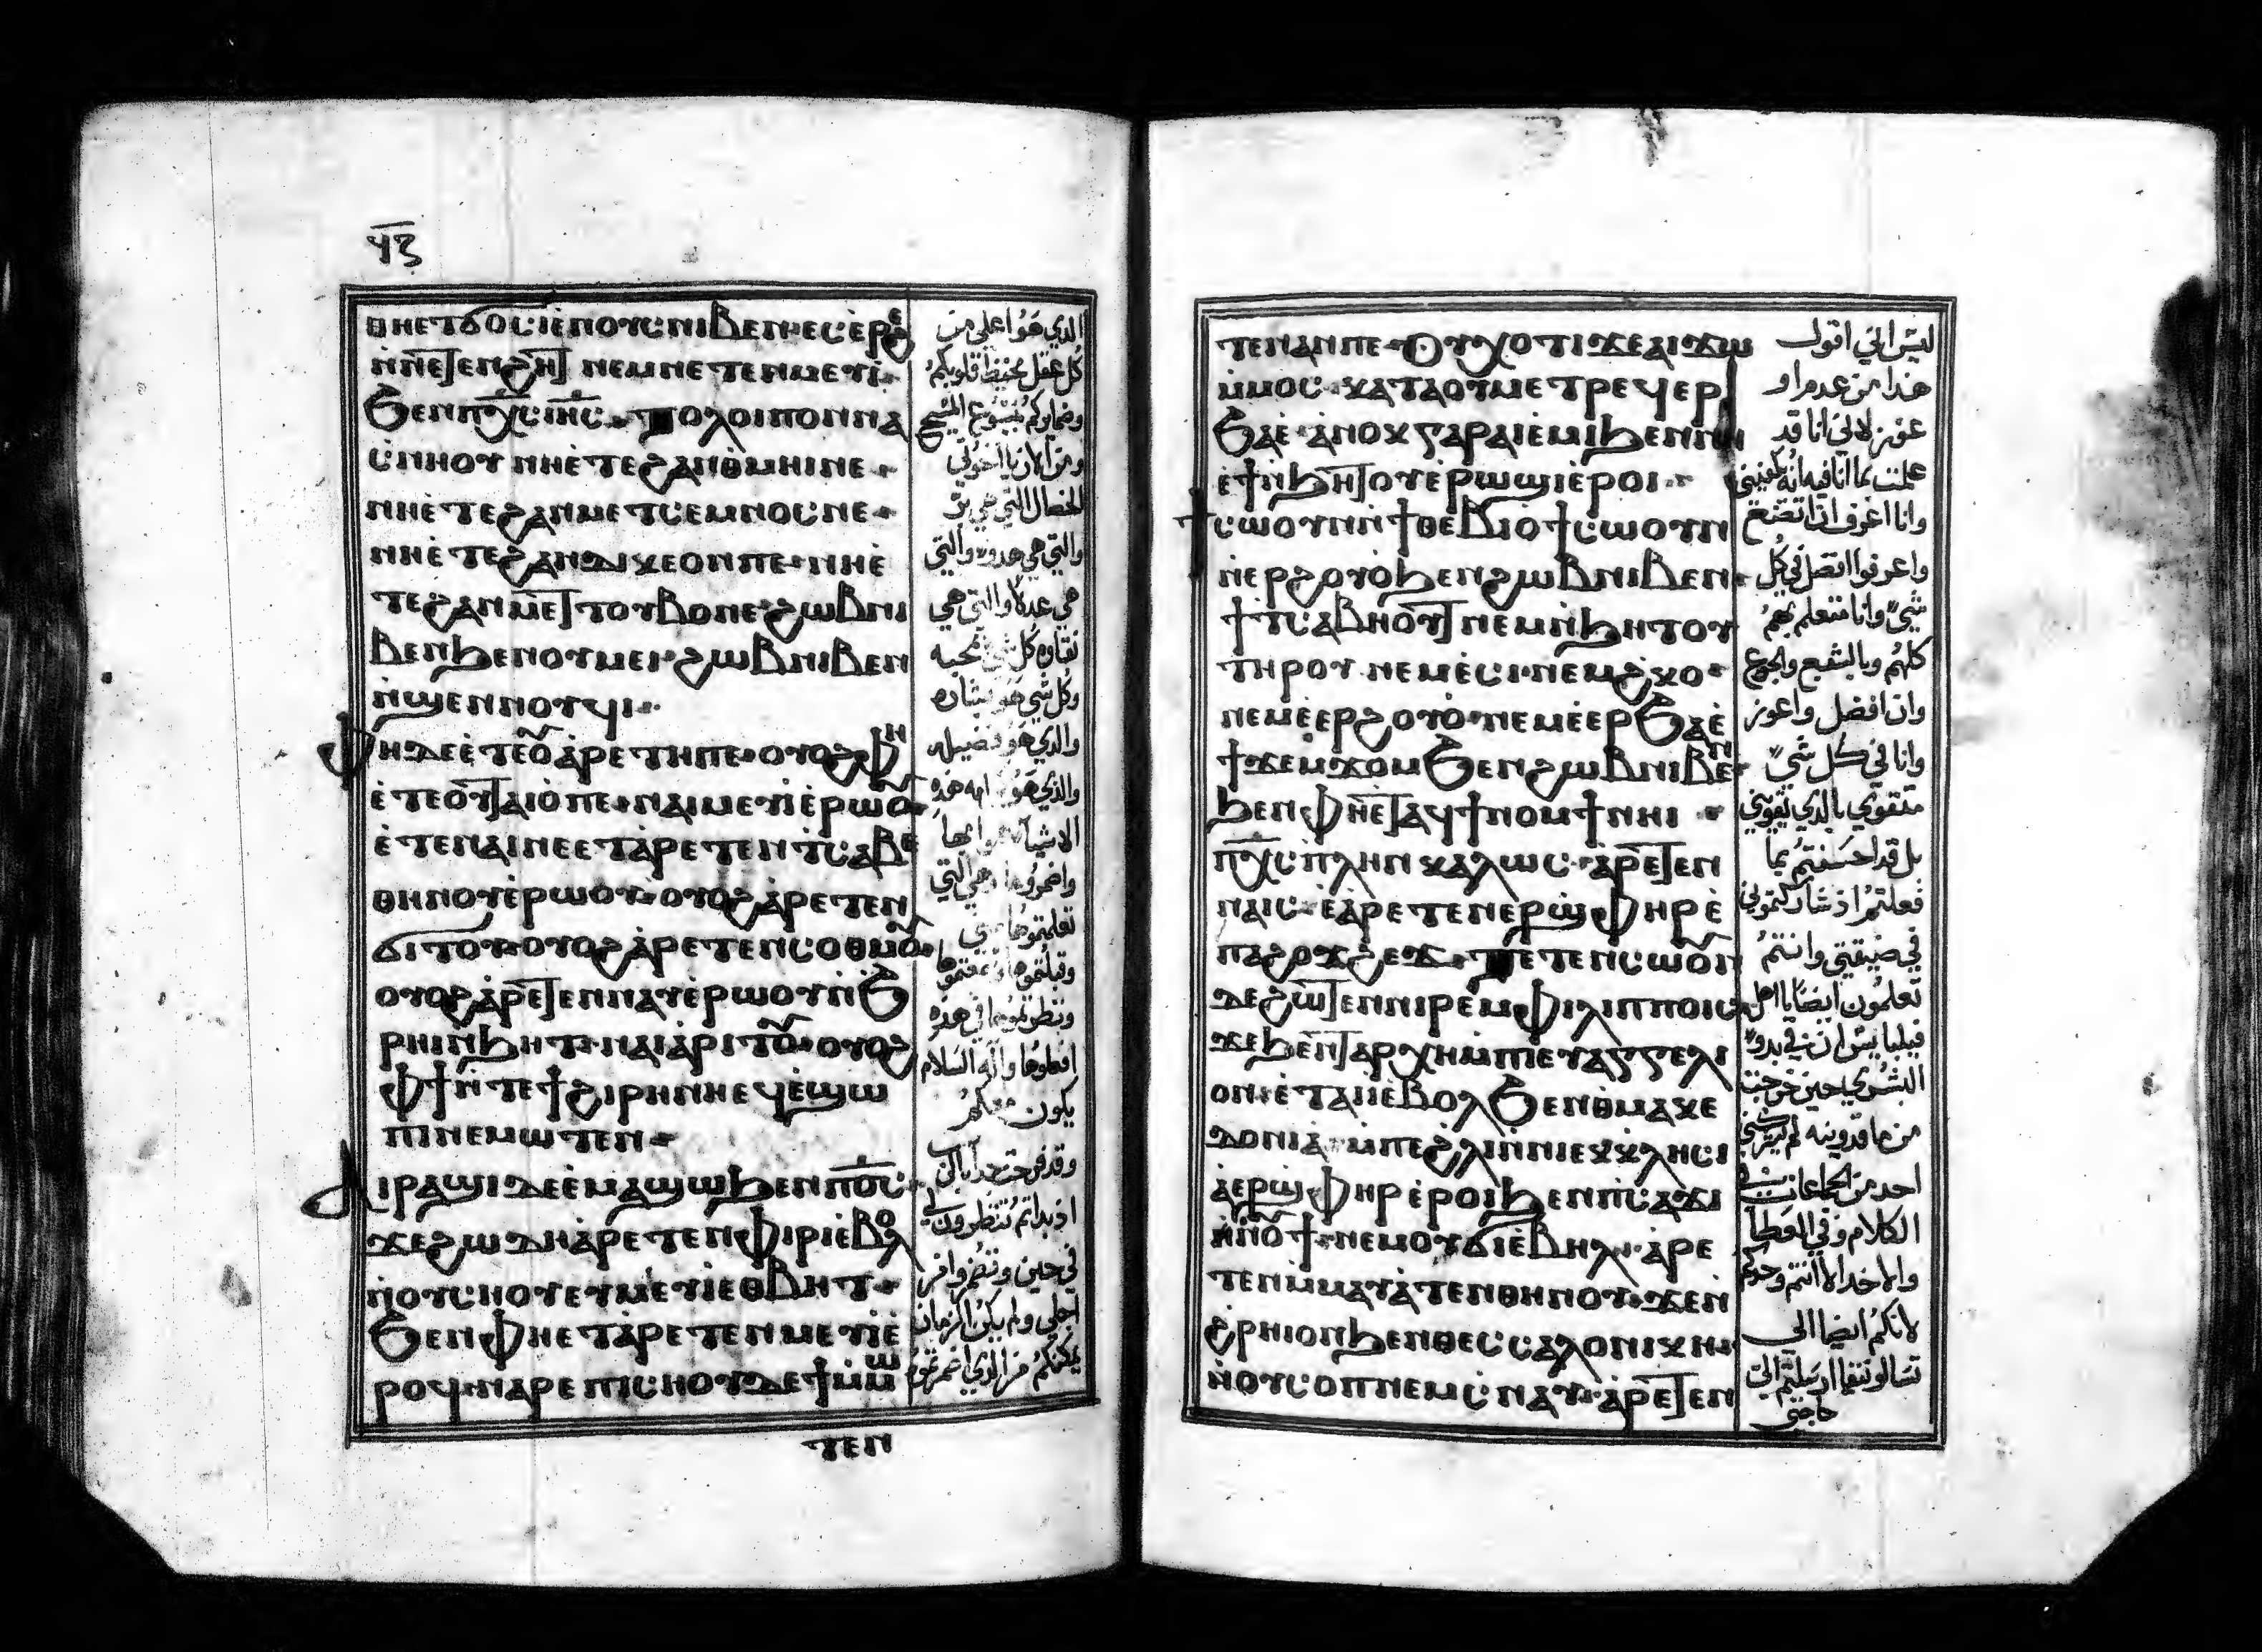 ϥⲍ
ⲑⲏⲉⲧϭⲟⲥⲓⲉ̀ⲛⲟⲩⲥⲛⲓⲃⲉⲛ·ⲉⲥⲉ̀ⲣⲉϩ
ⲛ̀ⲛⲉⲧⲉⲛϩⲏⲧ ⲛⲉⲙⲛⲉⲧⲉⲛⲙⲉⲩⲓ·
ϧⲉⲛⲡⲭ̅ⲥ̅ⲓⲏ̅ⲥ̅· ⲧⲟⲗⲟⲓⲡⲟⲛⲛⲁ
ⲥ̀ⲛⲏⲟⲩ ⲛⲏⲉ̀ⲧⲉϩⲁⲛⲑⲙⲏⲓⲛⲉ·
ⲛⲏⲉ̀ⲧⲉϩⲁⲛⲙⲉⲧⲥⲉⲙⲛⲟⲥⲛⲉ·
ⲛⲏⲉ̀ⲧⲉϩⲁⲛⲇⲓⲕⲉⲟⲛⲡⲉ·ⲛⲏⲉ̀
ⲧⲉϩⲁⲛⲙⲉⲧⲧⲟⲩⲃⲟⲛⲉ·ϩⲱⲃⲛⲓ
ⲃⲉⲛϧⲉⲛⲟⲩⲙⲉⲓ·ϩⲱⲃⲛⲓⲃⲉⲛ
ⲛ̀ϣⲉⲛⲛⲟⲩϥⲓ·
ⲫⲏⲇⲉⲉ̀ⲧⲉⲟ̄ⲁ̀ⲣⲉⲧⲏⲡⲉ·ⲟⲩⲟϩⲫⲏ
ⲉ̀ⲧⲉⲟⲩⲧⲁⲓⲟ̀ⲡⲉ·ⲛⲁⲓⲙⲉⲩⲓⲉ̀ⲣⲱⲟ̄
ⲉ̀ⲧⲉⲛⲁⲓⲛⲉⲉⲧⲁ̀ⲣⲉⲧⲉⲛⲧⲥⲁⲃⲉ
ⲑⲏⲛⲟⲩⲉ̀ⲣⲱⲟⲩ·ⲟⲩⲟϩⲁ̀ⲣⲉⲧⲉⲛ
ϭⲓⲧⲟⲩ·ⲟⲩⲟϩⲁ̀ⲣⲉⲧⲉⲛⲥⲟⲑⲙⲟ̄·
ⲟⲩⲟϩⲁ̀ⲣⲉⲧⲉⲛⲛⲁⲩⲉ̀ⲣⲱⲟⲩⲛ̀ϧ
ⲣⲏⲓⲛ̀ϧⲏⲧ·ⲛⲁⲓⲁ̀ⲣⲓⲧⲟ̄·ⲟⲩⲟϩ
ⲫϯⲛ̀ⲧⲉϯϩⲓⲣⲏⲛⲏⲉϥⲉ̀ϣⲱ
ⲡⲓⲛⲉⲙⲱⲧⲉⲛ·
ⲁⲓⲣⲁϣⲓⲇⲉⲉ̀ⲙⲁϣⲱϧⲉⲛⲡⲟ̅ⲥ̅·
ϫⲉϩⲱⲇⲏⲁ̀ⲣⲉⲧⲉⲛⲫⲓⲣⲓⲉ̀ⲃⲟⲗ
ⲛ̀ⲟⲩⲥⲏⲟⲩⲉⲩⲙⲉⲩⲓⲉⲑⲃⲏⲧ·
ϧⲉⲛⲫⲏⲉⲧⲁ̀ⲣⲉⲧⲉⲛⲙⲉⲩⲓⲉ̀
ⲣⲟϥ·ⲛⲁⲣⲉⲡⲓⲥⲏⲟⲩⲇⲉϯⲙ̀ⲙⲱ
ⲧⲉⲛ
الذي هو اعلى من
كل عقل يحفظ قلوبكم
وضمايركم بيسوع المسيح
ومن الان يا اخوتي
الخصال التي هي بر
والتي هي هدوء والتي
هي عدلا والتي هي
نقاوه كل شي بمحبه
وكل شي هو بشاره
والذي هو فضيله
والذي هو كرامه هذه
الاشيا
واضمروها وهي التي
تعلمتموها مني
وقبلتموها وسمعتموها
ونظرتموها في هذه
افعلوها واله السلام
يكون معكم
وقد فرحت جدا بالرب
اذ بداتم تنظرون لي
في حين وتضمروا من
اجلي ولم يكن الزمان
يمكنكم من الذي اضمرتموه
ⲧⲉⲛⲁⲛⲡⲉ·ⲟⲩⲭⲟⲧⲓϫⲉⲁⲓϫⲱ
ⲙ̀ⲙⲟⲥ·ⲕⲁⲧⲁⲟⲩⲙⲉⲧⲣⲉϥⲉⲣ
ϧⲁⲉ̀·ⲁ̀ⲛⲟⲕⲅⲁⲣⲁⲓⲉ̀ⲙⲓϧⲉⲛⲛⲏ
ⲉ̀ϯⲛ̀ϧⲏⲧⲟⲩⲉ̀ⲣⲱϣⲓⲉ̀ⲣⲟⲓ·
ϯⲥⲱⲟⲩⲛⲛ̀ϯⲑⲉⲃⲓⲟϯⲥⲱⲟⲩⲛ
ⲛ̀ⲉⲣϩⲟⲩⲟ̀ϧⲉⲛϩⲱⲃⲛⲓⲃⲉⲛ·
ϯⲧⲥⲁⲃⲏⲟⲩⲧⲛⲉⲙⲛ̀ϧⲏⲧⲟⲩ
ⲧⲏⲣⲟⲩ·ⲛⲉⲙⲉ̀ⲥⲓ·ⲛⲉⲙϩ̀ⲕⲟ·
ⲛⲉⲙⲉ̀ⲉⲣϩⲟⲩⲟ̀·ⲛⲉⲙⲉ̀ⲉⲣϧⲁⲉ̀
ϯϫⲉⲙϫⲟⲙϧⲉⲛϩⲱⲃⲛⲓⲃⲉⲛ·
ϧⲉⲛⲫⲏⲉⲧⲁϥϯⲛⲟⲙϯⲛⲏⲓ·
ⲡⲭ̅ⲥ̅ⲡⲗⲏⲛⲕⲁⲗⲱⲥ·ⲁ̀ⲣⲉⲧⲉⲛ
ⲛⲁⲓⲥ·ⲉ̀ⲁ̀ⲣⲉⲧⲉⲛⲉⲣϣ̀ⲫⲏⲣⲉ̀
ⲡⲁϩⲟϫϩⲉϫ·ⲧⲉⲧⲉⲛⲥⲱⲟ̄ⲛ
ⲇⲉϩⲱⲧⲉⲛⲛⲓⲣⲉⲙⲫⲓⲗⲓⲡⲡⲟⲓⲥ
ϫⲉϧⲉⲛⲧⲁⲣⲭⲏⲙ̀ⲡⲓⲉⲩⲁⲅⲅⲉⲗⲓ
ⲟⲛ·ⲉ̀ⲧⲁⲓⲓ̀ⲉ̀ⲃⲟⲗϧⲉⲛⲑⲙⲁⲕⲉ
ⲇⲟⲛⲓⲁ̀·ⲙ̀ⲡⲉϩ̀ⲗⲓⲛ̀ⲛⲓⲉⲕⲕⲗⲏⲥⲓ
ⲁ̀ⲉⲣϣ̀ⲫⲏⲣⲉ̀ⲣⲟⲓϧⲉⲛⲡⲥⲁϫⲓ
ⲛ̀ⲛⲟ̄ϯ·ⲛⲉⲙⲟⲩϭⲓⲉ̀ⲃⲏⲗ·ⲁ̀ⲣⲉ
ⲧⲉⲛⲙ̀ⲙⲁⲩⲁ̀ⲧⲉⲛⲑⲏⲛⲟⲩ·ϫⲉⲛ
ϩ̀ⲣⲏⲓⲟⲛϧⲉⲛⲑⲉⲥⲥⲁⲗⲟⲛⲓⲕⲏ·
ⲛ̀ⲟⲩⲥⲟⲡⲛⲉⲙⲥ̀ⲛⲁⲩ·ⲁ̀ⲣⲉⲧⲉⲛ
ليس اني اقول
هذا من عدم او
عوز لاني انا قد
علمت بما انا فيه انه يكفيني
وانا اعرف ان اتضع
واعرف ان افضل في كل
شي وانا متعلم بهم
كلهم وبالشبع والجوع
وان افضل واعوز
وانا في كل شي
متقوي بالذي يقويني
بل قد احسنتم بما
فعلتم اذ شاركتموني
في ضيقتي وانتم
تعلمون ايضا يا اهل
فيلبايس ان في بدو
البشري حين خرجت
من ماقدونيه لم يشاركني
احد من الجماعات في
الكلام وفي العطا
والاخد الا انتم وحدكم
لانكم ايضا الي
تسالونيقا ارسلتم الي
حاجتي